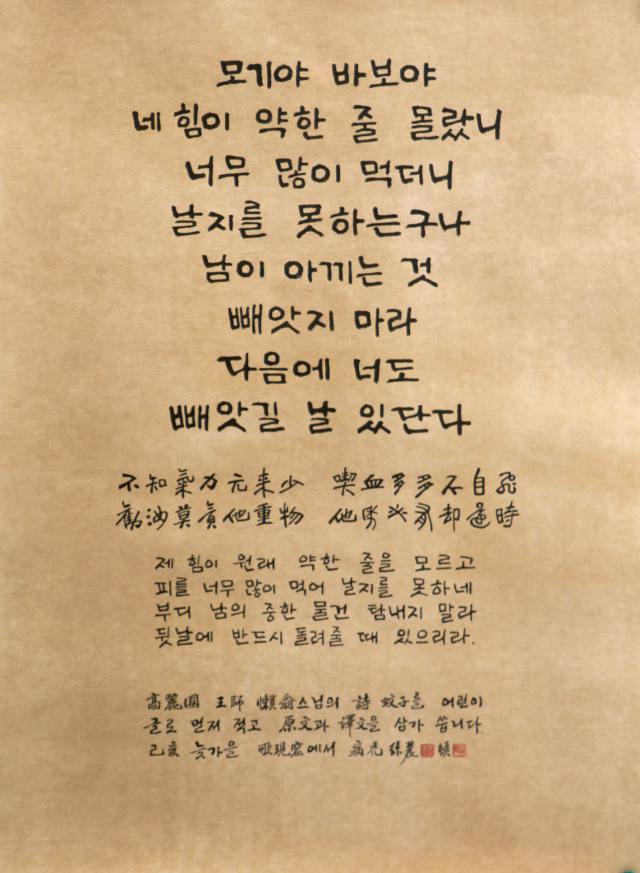 모기야 바보야
네 힘이 약한 줄 몰랐니
너무 많이 먹더니
날지를 못하는구나
남이 아끼는 것
빼앗지 마라
다음에 너도
빼앗길 날 있단다
不知氣力元來少 喫血多多不自飛
勸汝莫貪他重物 他年必有却還時
제 힘이 원래 약한 줄을 모르고
피를 너무 많이 먹어 날지를 못하네
부디 남의 중한 물건 탐내지 말라
뒷날에 반드시 돌려줄 때 있으리라.
高麗國 王師 懶翁스님의 詩 蚊子를 어린이
글로 먼저 적고 原文과 譯文을 삼가 씁니다.
己亥 늦가을 에서